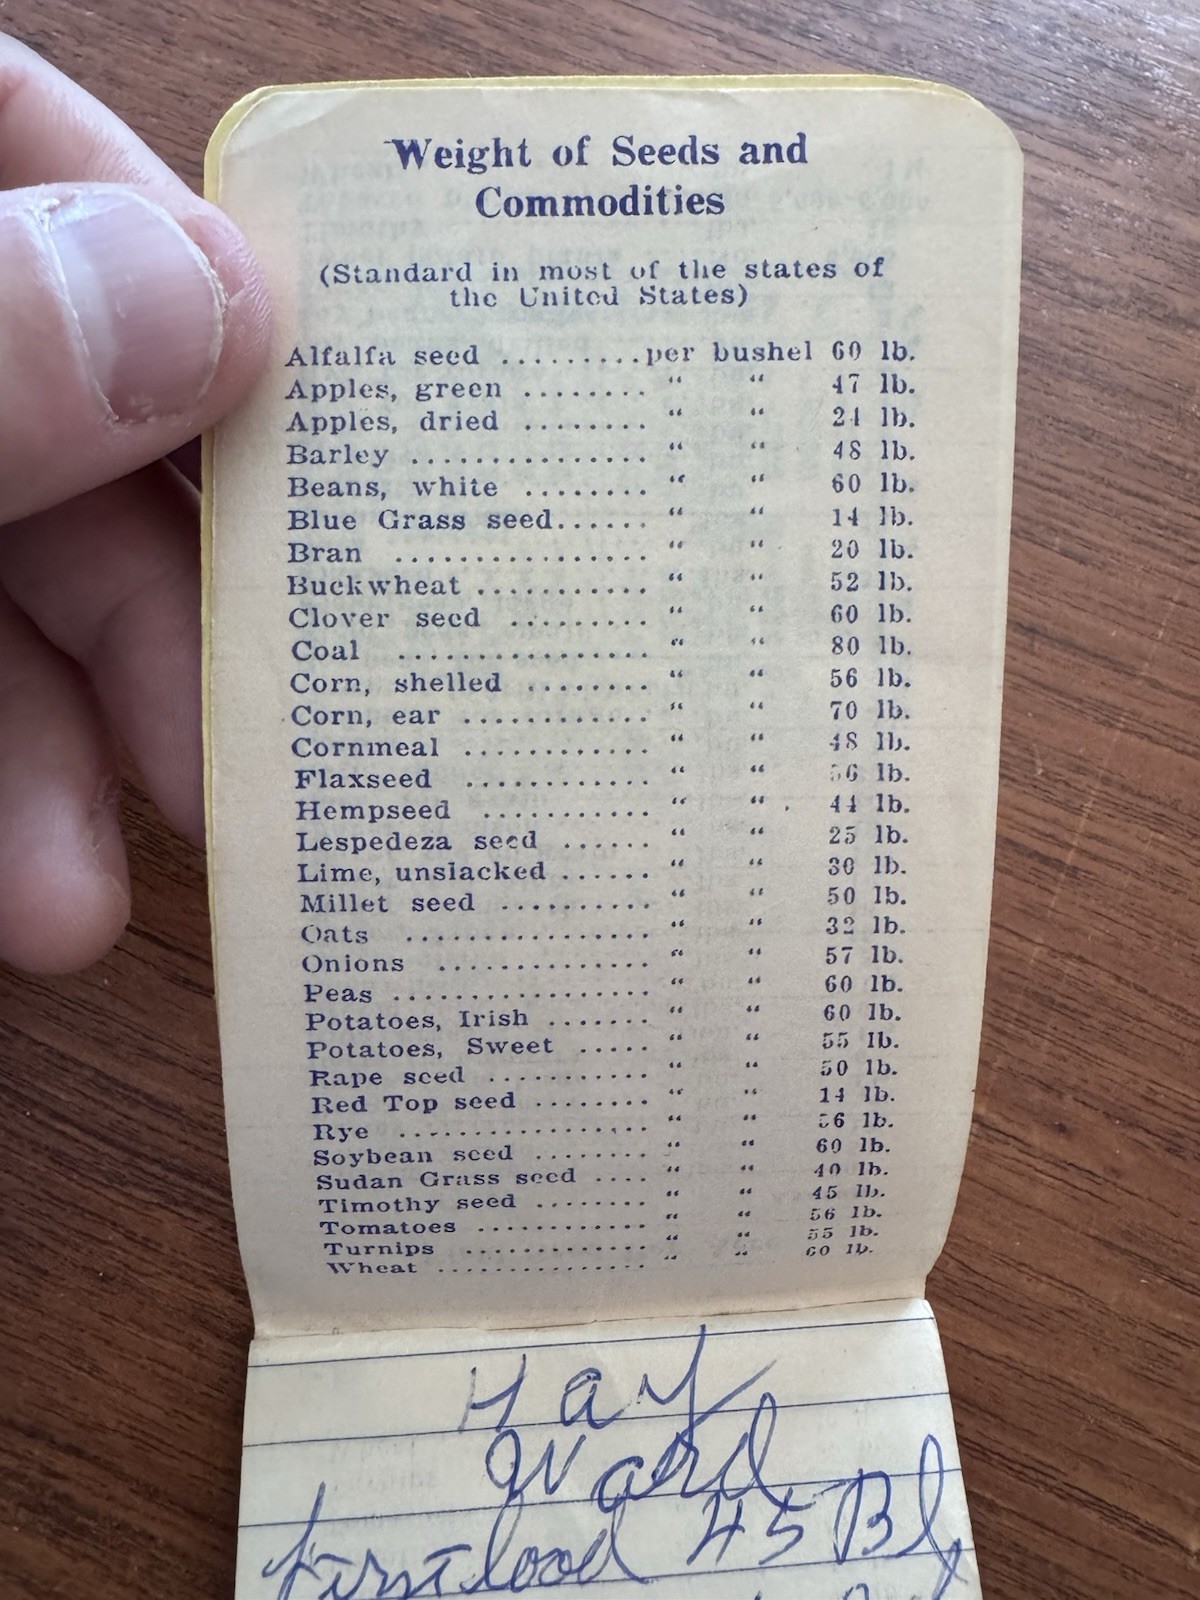 Weight of Seeds and
Commodities
(Standard in most of the states of
the United States)
Alfalfa seed .........per bushel 60 lb.
Apples, green ........ “ “ 47 lb.
Apples, dried ........ “ “ 24 lb.
Barley ............... “ “ 48 lb.
Beans, white ........ “ “ 60 lb.
Blue Grass seed...... “ “ 14 lb.
Bran ................ “ “ 20 lb.
Buckwheat ........... “ “ 52 lb.
Clover seed ......... “ “ 60 lb.
Coal ................ “ “ 80 lb.
Corn, shelled ........ “ “ 56 lb.
Corn, ear ............ “ “ 70 lb.
Cornmeal ............ “ “ 48 lb.
Flaxseed ............ “ “ 56 lb.
Hempseed ........... “ “ 44 lb.
Lespedeza seed ...... “ “ 25 lb.
Lime, unslacked ...... “ “ 30 lb.
Millet seed .......... “ “ 50 lb.
Oats ................ “ “ 32 lb.
Onions .............. “ “ 57 lb.
Peas ................. “ “ 60 lb.
Potatoes, Irish ....... “ “ 60 lb.
Potatoes, Sweet ..... “ “ 55 lb.
Rape seed ........... “ “ 50 lb.
Red Top seed ........ “ “ 14 lb.
Rye ................. “ “ 56 lb.
Soybean seed ........ “ “ 60 lb.
Sudan Grass seed .... “ “ 40 lb.
Timothy seed ........ “ “ 45 lb.
Tomatoes ............ “ “ 56 lb.
Turnips ............. “ “ 55 lb.
Wheat ............... “ “ 60 lb.
Hay
Ward
first lood 45 Bl